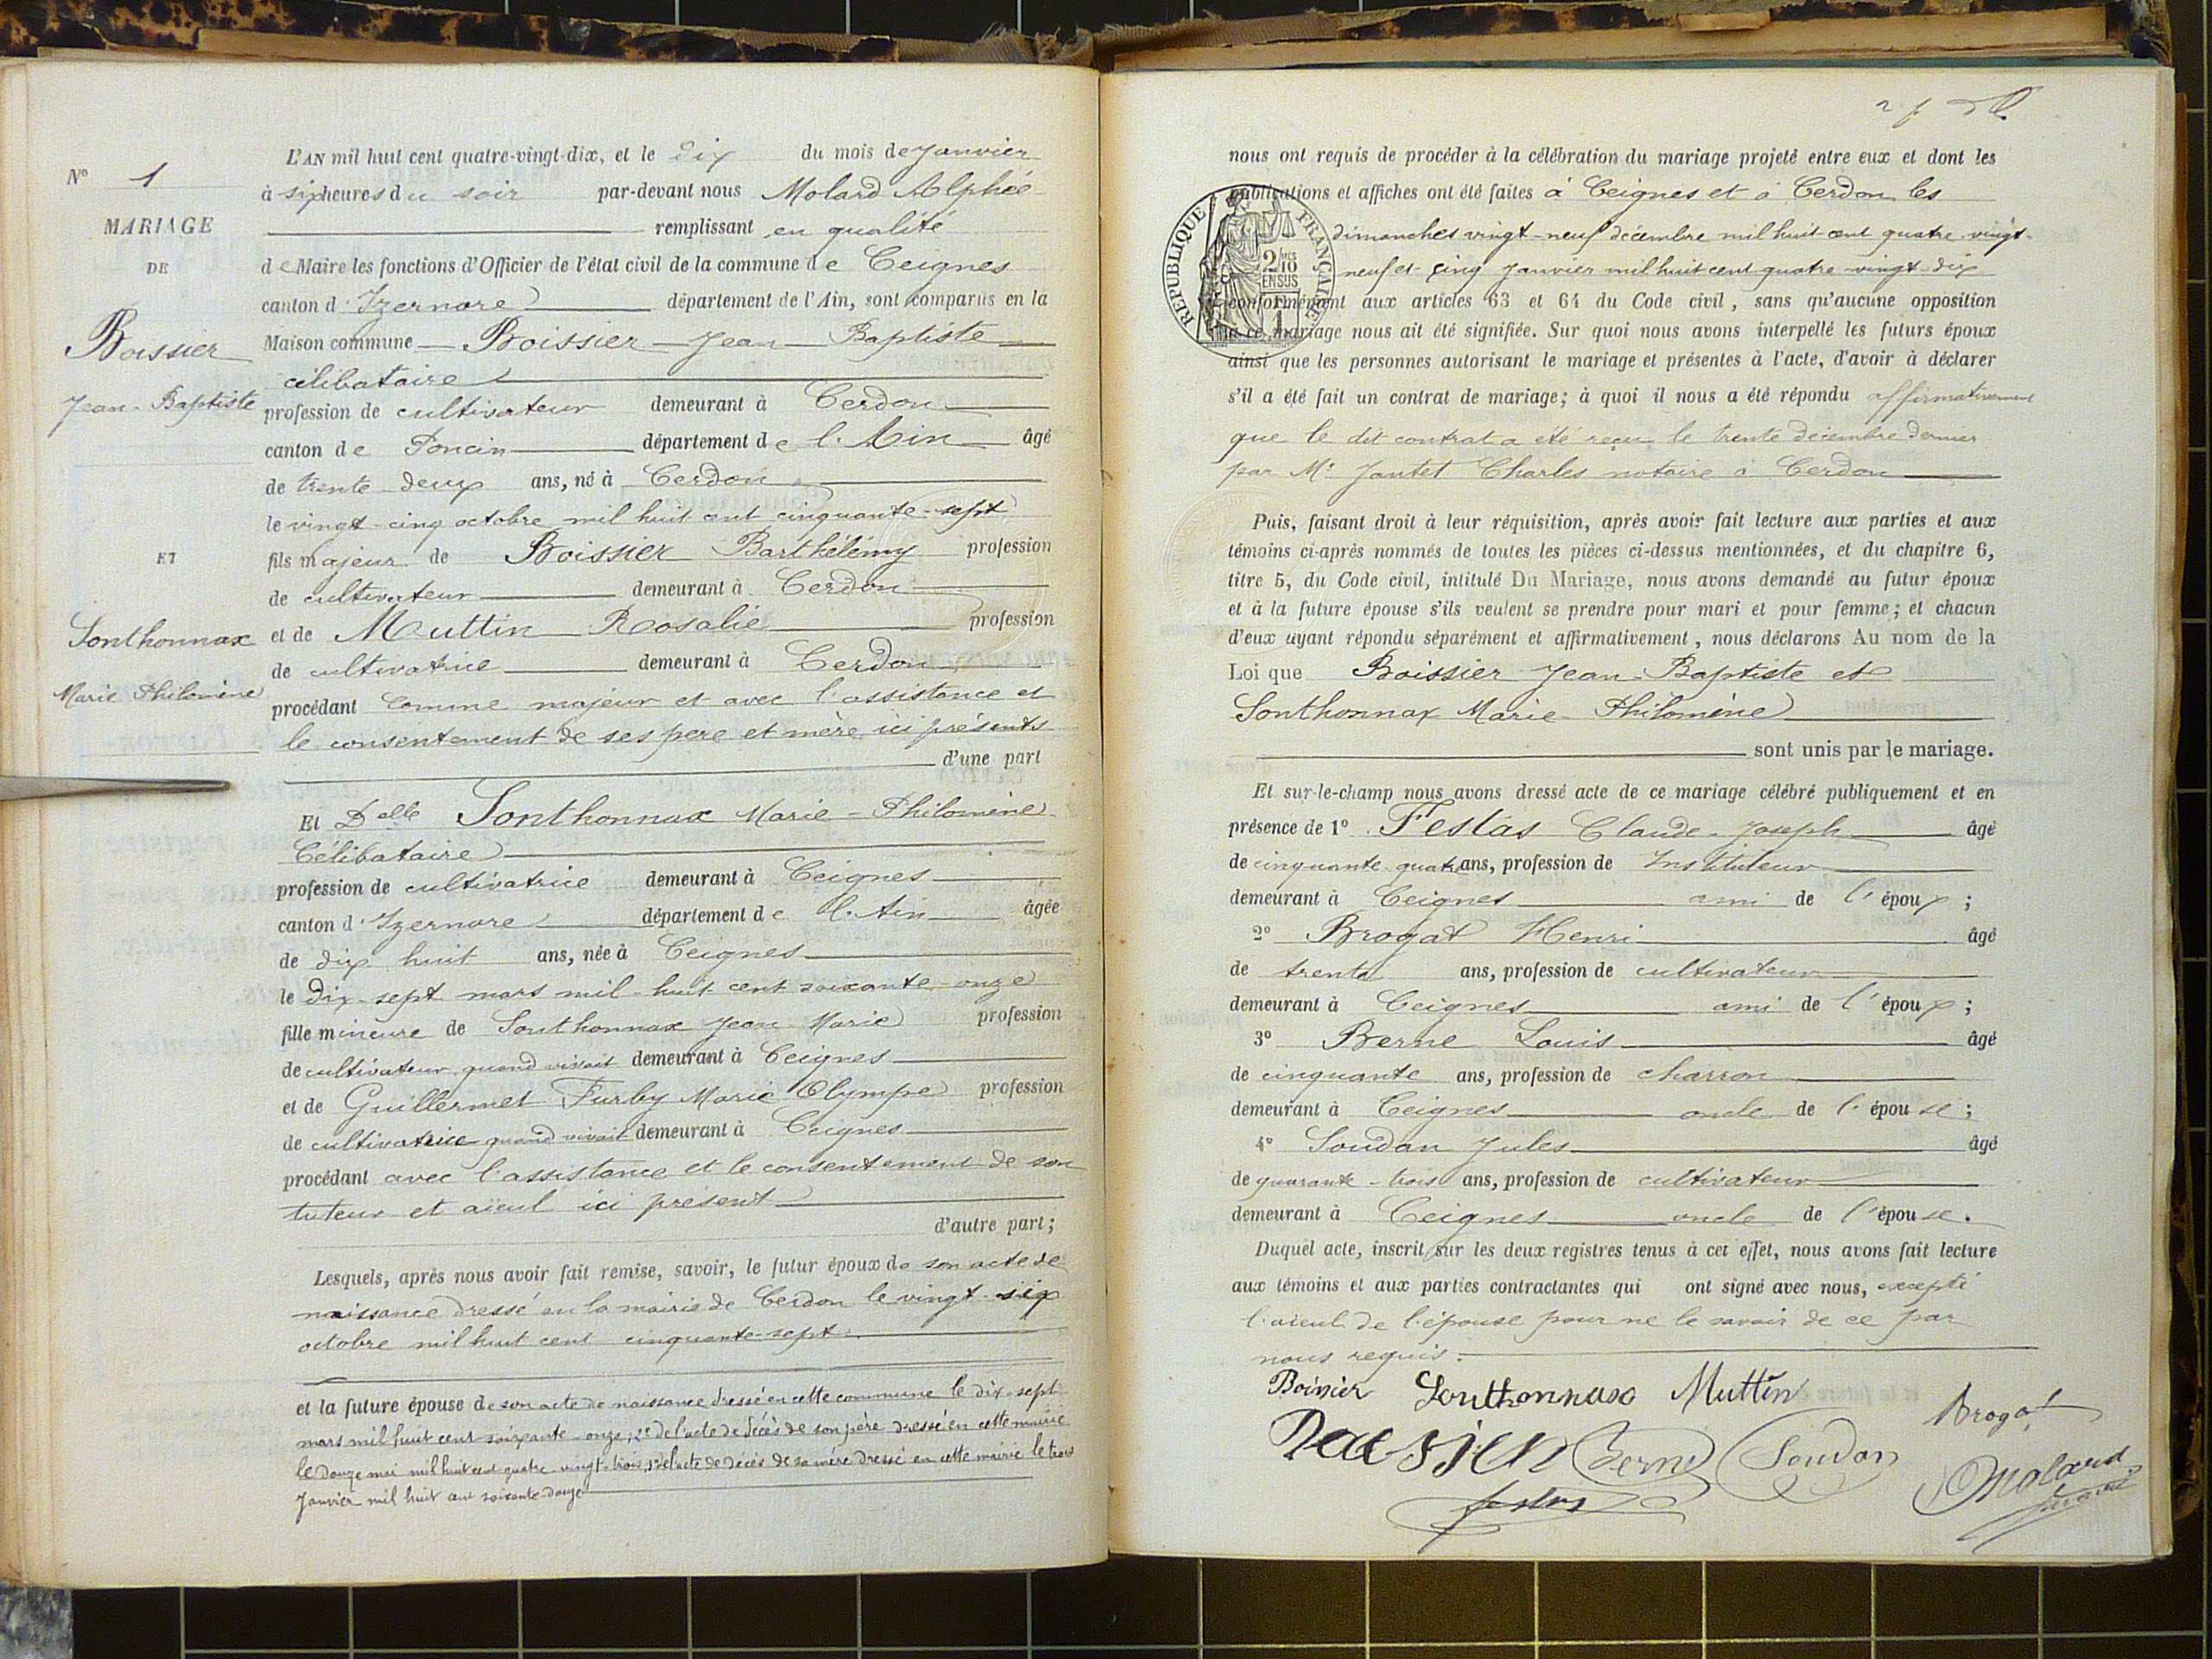 N° 1
MARIAGE
DE
Boissier
Jean-Baptiste
ET
Sonthonnax
Marie Philomène
L'AN mil huit cent quatre-vingt-dix, et le dix du mois de Janvier
à six heures du soir par-devant nous Molard Alphée
remplissant en qualité
de Maire les fonctions d'Officier de l'état civil de la commune de Ceignes
canton d'Izernore département de l'Ain, sont comparus en la
Maison commune Boissier Jean Baptiste
célibataire
profession de cultivateur demeurant à Cerdon
canton de Poncin département de l'Ain âgé
de trente deux ans, né à Cerdon
le vingt-cinq octobre mil huit cent cinquante-sept
fils majeur de Boissier Barthélémy profession
de cultivateur demeurant à Cerdon
et de Muttin Rosalie profession
de cultivatrice demeurant à Cerdon
procédant comme majeur et avec l'assistance et
le consentement de ses père et mère ici présents
d'une part
Et Delle Sonthonnax Marie-Philomène
Célibataire
profession de cultivatrice demeurant à Ceignes
canton d'Izernore département de l'Ain âgée
de dix huit ans, née à Ceignes
le dix-sept mars mil-huit cent soixante-onze
fille mineure de Sonthonnax Jean Marie profession
de cultivateur quand vivait demeurant à Ceignes
et de Guillermet Furby Marie Olympe profession
de cultivatrice quand vivait demeurant à Ceignes
procédant avec l'assistance et le consentement de son
tuteur et aïeul ici présent
d'autre part;
Lesquels, après nous avoir fait remise, savoir, le futur époux de son acte de
naissance dressé en la mairie de Cerdon le vingt-six
octobre mil huit cent cinquante-sept.
et la future épouse de son acte de naissance dressé en cette commune le dix-sept
mars mil huit cent soixante-onze; 2° de l'acte de décès de son père dressé en cette mairie
le douze mai mil huit cent quatre-vingt-trois, 3° de l'acte de décès de sa mère dressé en cette mairie le trois
Janvier mil huit cent soixante-douze
nous ont requis de procéder à la célébration du mariage projeté entre eux et dont les
publications et affiches ont été faites à Ceignes et à Cerdon les
dimanches vingt-neuf décembre mil huit cent quatre-vingt-
neuf et cinq Janvier mil huit cent quatre-vingt-dix
RÉPUBLIQUE FRANÇAISE
2/10 EN SUS
conformément aux articles 63 et 64 du Code civil, sans qu'aucune opposition
à ce mariage nous ait été signifiée. Sur quoi nous avons interpellé les futurs époux
ainsi que les personnes autorisant le mariage et présentes à l'acte, d'avoir à déclarer
s'il a été fait un contrat de mariage; à quoi il nous a été répondu affirmativement
que le dit contrat a été reçu le trente décembre dernier
par Me Jantet Charles notaire à Cerdon
Puis, faisant droit à leur réquisition, après avoir fait lecture aux parties et aux
témoins ci-après nommés de toutes les pièces ci-dessus mentionnées, et du chapitre 6,
titre 5, du Code civil, intitulé Du Mariage, nous avons demandé au futur époux
et à la future épouse s'ils veulent se prendre pour mari et pour femme; et chacun
d'eux ayant répondu séparément et affirmativement, nous déclarons Au nom de la
Loi que Boissier Jean-Baptiste et
Sonthonnax Marie-Philomène
sont unis par le mariage.
Et sur-le-champ nous avons dressé acte de ce mariage célébré publiquement et en
présence de 1° Festas Claude-Joseph âgé
de cinquante-quatre ans, profession de Instituteur
demeurant à Ceignes ami de l'époux;
2° Brogat Henri âgé
de trente ans, profession de cultivateur
demeurant à Ceignes ami de l'époux;
3° Berne Louis âgé
de cinquante ans, profession de charron
demeurant à Ceignes oncle de l'épouse;
4° Soudan Jules âgé
de quarante-trois ans, profession de cultivateur
demeurant à Ceignes oncle de l'épouse.
Duquel acte, inscrit sur les deux registres tenus à cet effet, nous avons fait lecture
aux témoins et aux parties contractantes qui ont signé avec nous, excepté
l'aïeul de l'épouse pour ne le savoir de ce par
nous requis.
Boissier Sonthonnax Muttin Brogat
Berne Soudan
Molard